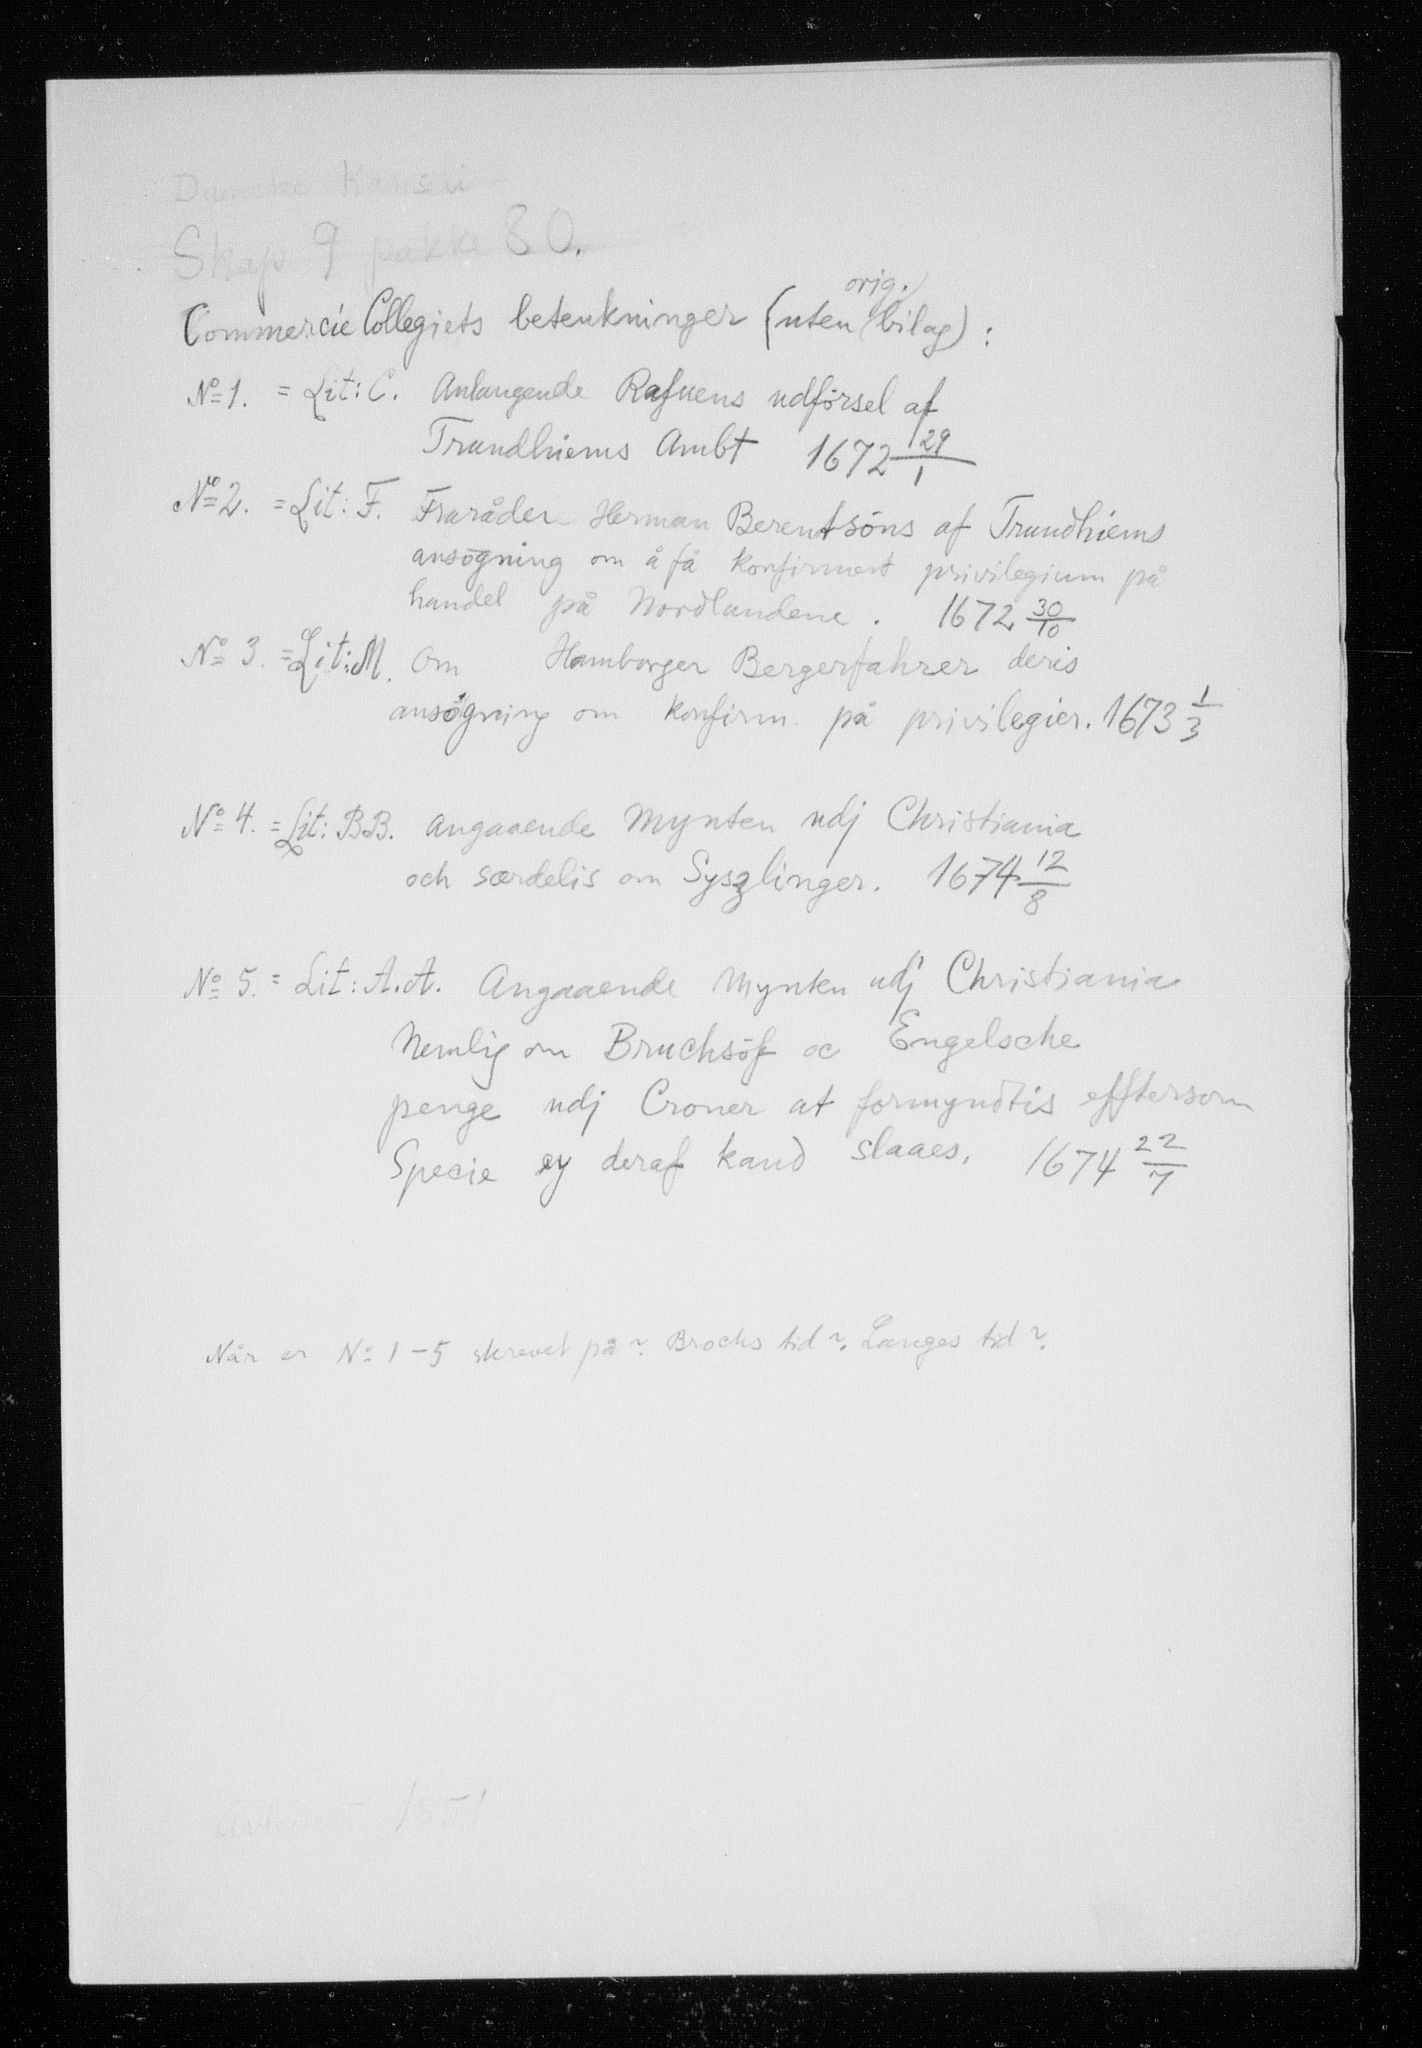 Danske Kanseli
Skap 9 pakke 80.
Commercie Collegiets betenkninger (uten orig. bilag):
No 1. = Lit: C. Anlangende Rafuens udförsel af
Trundhiems Ambt 1672 29/1
No 2. = Lit: F. Fraråder Herman Berentsöns af Trundhiems
ansögning om å få konfirmert privilegium på
handel på Nordlandene. 1672 30/10
No 3. = Lit: M. Om Hamborger Bergerfahrer deris
ansögning om konfirm. på privilegier. 1673 1/3
No 4. = Lit: BB. Angaaende Mynten udj Christiania
och særdelis om Syszlinger. 1674 12/8
No 5. = Lit: A.A. Angaaende Mynten udj Christiania
Nemlig om Bruchsölf oc Engelsche
penge udj Croner at formyndtis efftersom
Specie ey deraf kand slaaes. 1674 22/7
Når er No 1-5 skrevet på? Brochs tid?. Langes tid?.